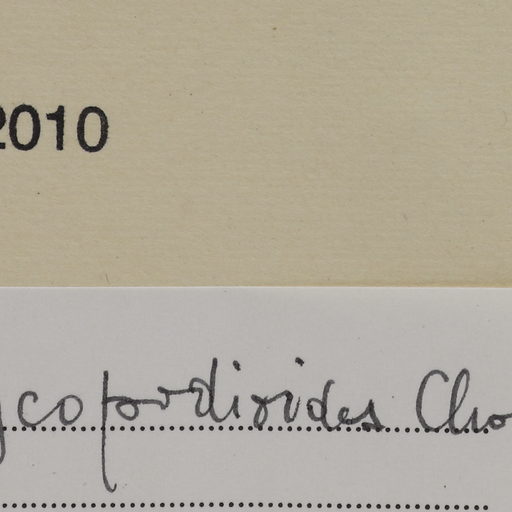 2010
ycopordioides Cho